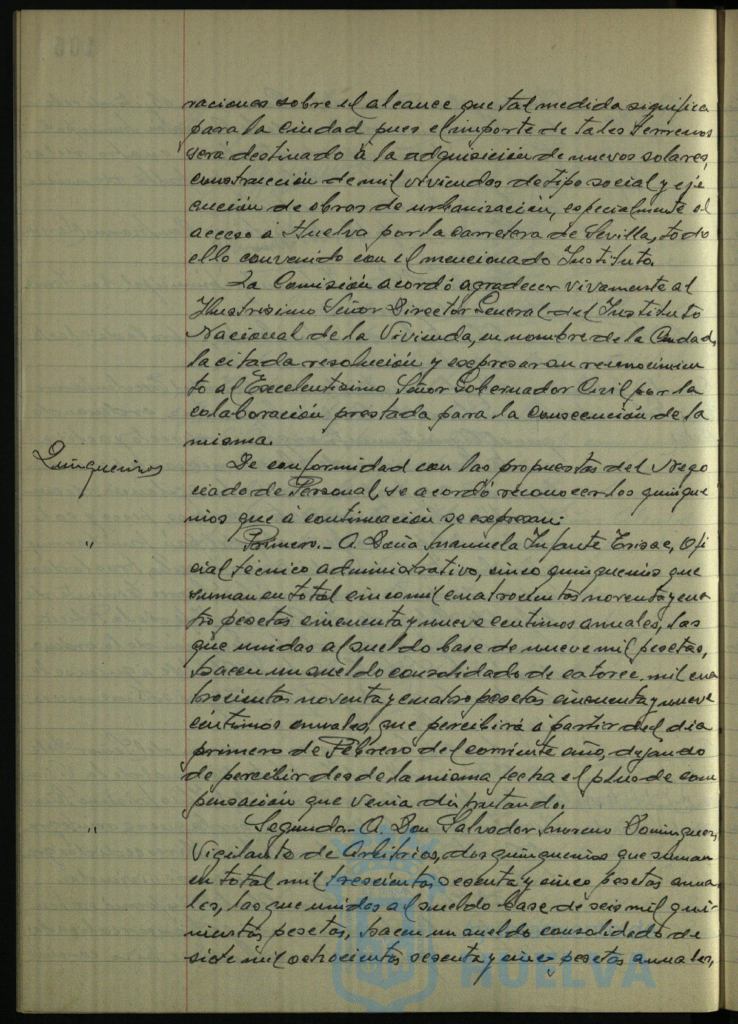 raciones sobre el alcance que tal medida significa
para la Ciudad pues el importe de tales terrenos
será destinado á la adquisición de nuevos solares,
construcción de mil viviendas de tipo social y eje
cución de obras de urbanización, especialmente el
acceso á Huelva por la carretera de Sevilla, todo
ello convenido con el mencionado Instituto.
La Comisión acordó agradecer vivamente al
Ilustrisimo Señor Director General del Instituto
Nacional de la Vivienda, en nombre de la Ciudad,
la citada resolución y expresar su reconocimien
to al Excelentisimo Señor Gobernador Civil por la
colaboración prestada para la consecución de la
misma.
Quinquenios
De conformidad con las propuestas del Nego
ciado de Personal, se acordó reconocer los quinque
nios que á continuación se expresan:
"
Primero.- A Doña Manuela Infante, Ofi
cial técnico administrativo, cinco quinquenios que
suman en total cinco mil cuatrocientas noventa y cua
tro pesetas cincuenta y nueve centimos anuales, las
que unidas al sueldo base de nueve mil pesetas,
hacen un sueldo consolidado de catorce mil cua
trocientas noventa y cuatro pesetas cincuenta y nueve
céntimos anuales, que percibirá á partir del dia
primero de Febrero del corriente año, dejando
de percibir desde la misma fecha el plus de com
pensación que venia disfrutando.
"
Segundo.- A Don Salvador Moreno Dominguez,
Vigilante de Arbitrios, dos quinquenios que suman
en total mil trescientas sesenta y cinco pesetas anua
les, las que unidas al sueldo base de seis mil qui-
nientas pesetas, hacen un sueldo consolidado de
siete mil ochocientas sesenta y cinco pesetas anuales,
HUELVA